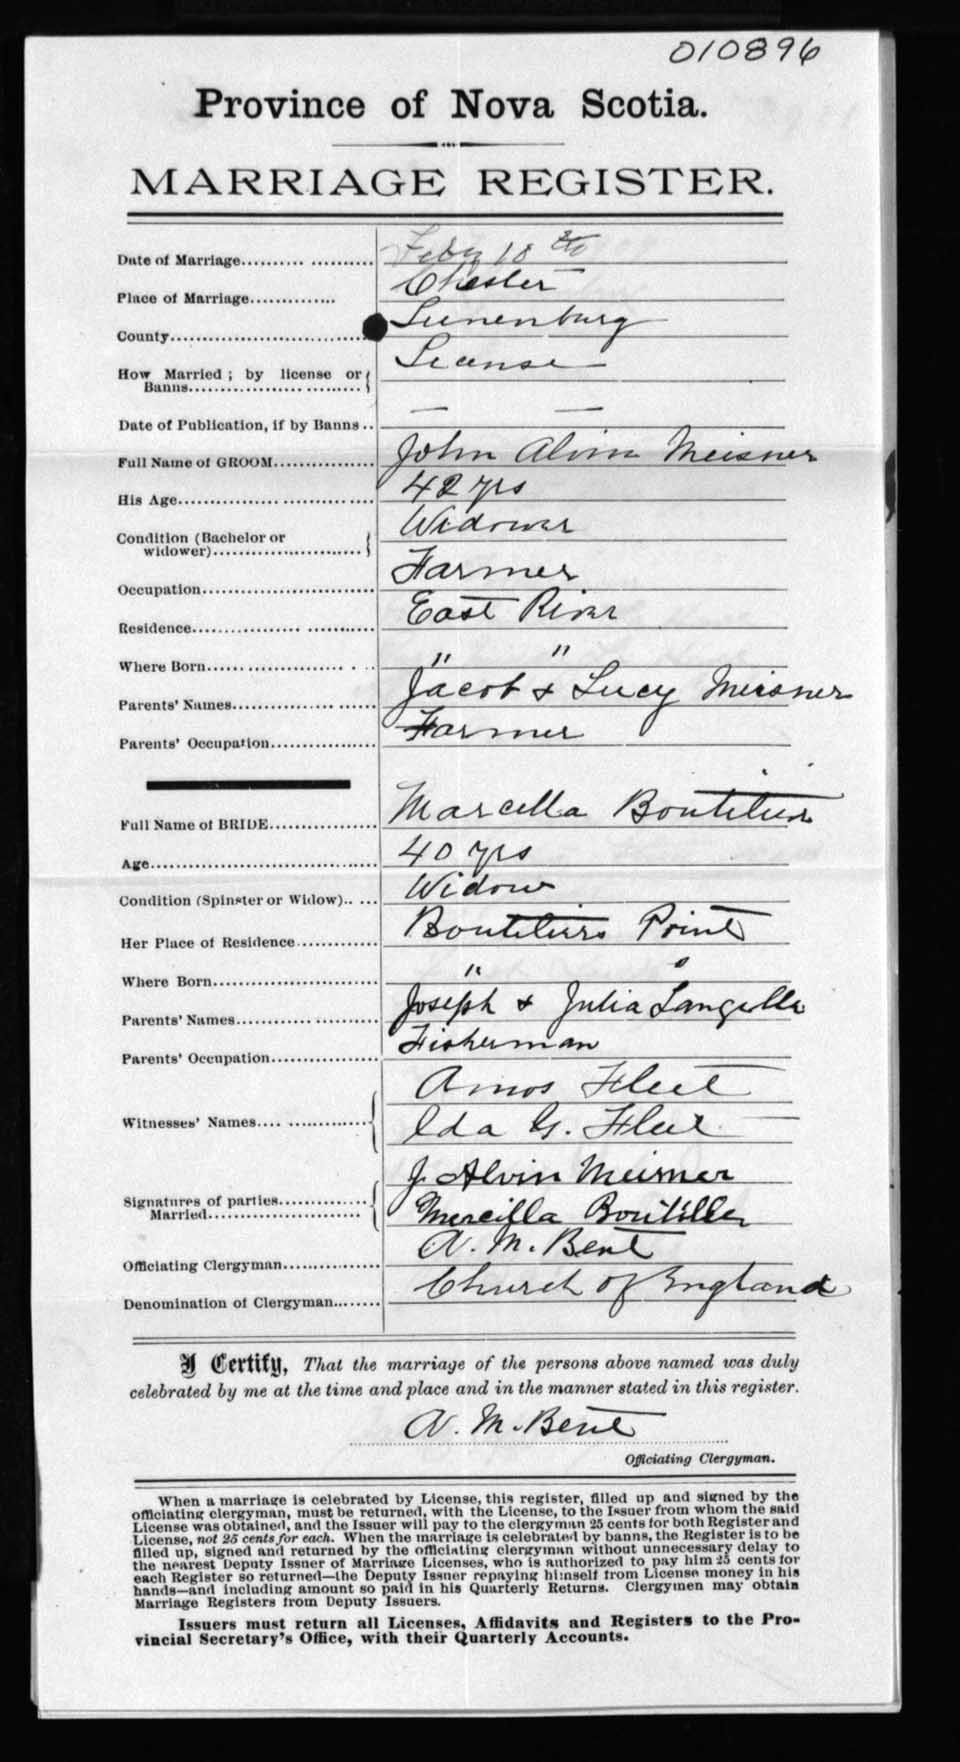 010896
Province of Nova Scotia.
MARRIAGE REGISTER.
Date of Marriage.......... ........... Feby 18th
Place of Marriage.............. Chester
County............................. Lunenburg
How Married ; by license or Banns........................ License
Date of Publication, if by Banns .. — —
Full Name of GROOM................ John Alvin Meisner
His Age.................. ............... 42 yrs
Condition (Bachelor or widower)........................ Widower
Occupation............................ Farmer
Residence............... ............ East River
Where Born.................. . .. " "
Parents' Names.................. ...... Jacob & Lucy Meisner
Parents' Occupation................. Farmer
Full Name of BRIDE................ Marcella Boutilier
Age..................................... 40 yrs
Condition (Spinster or Widow).. ... Widow
Her Place of Residence............. Boutiliers Point
Where Born........................... " "
Parents' Names............. ........... Joseph & Julia Langille
Parents' Occupation................. Fisherman
Witnesses' Names.... .............. Amos Fleet
Ida G. Fleet
Signatures of parties Married........................ J. Alvin Meisner
Mercilla Boutiller
Officiating Clergyman................ A. M. Bent
Denomination of Clergyman......... Church of England
I Certify, That the marriage of the persons above named was duly
celebrated by me at the time and place and in the manner stated in this register.
A. M. Bent
Officiating Clergyman.
When a marriage is celebrated by License, this register, filled up and signed by the
officiating clergyman, must be returned, with the License, to the Issuer from whom the said
License was obtained, and the Issuer will pay to the clergyman 25 cents for both Register and
License, not 25 cents for each. When the marriage is celebrated by banns, the Register is to be
filled up, signed and returned by the officiating clergyman without unnecessary delay to
the nearest Deputy Issuer of Marriage Licenses, who is authorized to pay him 25 cents for
each Register so returned—the Deputy Issuer repaying himself from License money in his
hands—and including amount so paid in his Quarterly Returns. Clergymen may obtain
Marriage Registers from Deputy Issuers.
Issuers must return all Licenses, Affidavits and Registers to the Pro-
vincial Secretary's Office, with their Quarterly Accounts.